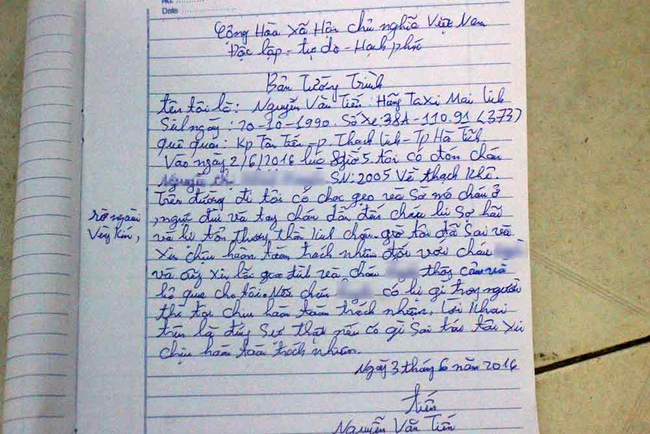 No.
Date
Cộng Hòa Xã Hội chủ nghĩa Việt Nam
Độc lập - tự do - Hạnh phúc
Bản Tường Trình
tên tôi là: Nguyễn Văn Tiến: Hãng Taxi Mai Linh
Sinh ngày: 20-10-1990. Số Xe: 38A-110.91 (373)
quê quán: Kp Tân Tiến - p. Thạch Linh - Tp Hà Tĩnh
Vào ngày 2/6/2016 lúc 8giờ5. tôi có đón cháu
Nguyễn th SN: 2005 Về thạch Khê.
Trên đường đi tôi có chọc gẹo và Sờ mó cháu ở
, người đùi và tay cháu dẫn đến cháu bị Sợ hãi
rờ ngoài
vùng kín,
và bị tổn thương thần kinh giờ tôi đã Sai và
Xin chịu hoàn toàn trách nhiệm đối với cháu
và cũng xin lỗi gia đình và cháu thông cảm và
bỏ qua cho tôi. Nếu cháu có bị gì trong người
thì tôi chịu hoàn toàn trách nhiệm, lời khai
trên là đúng Sự thật nếu có gì Sai trái tôi xin
chịu hoàn toàn trách nhiệm.
Ngày 3 tháng 6 năm 2016
tiến
Nguyễn Văn Tiến